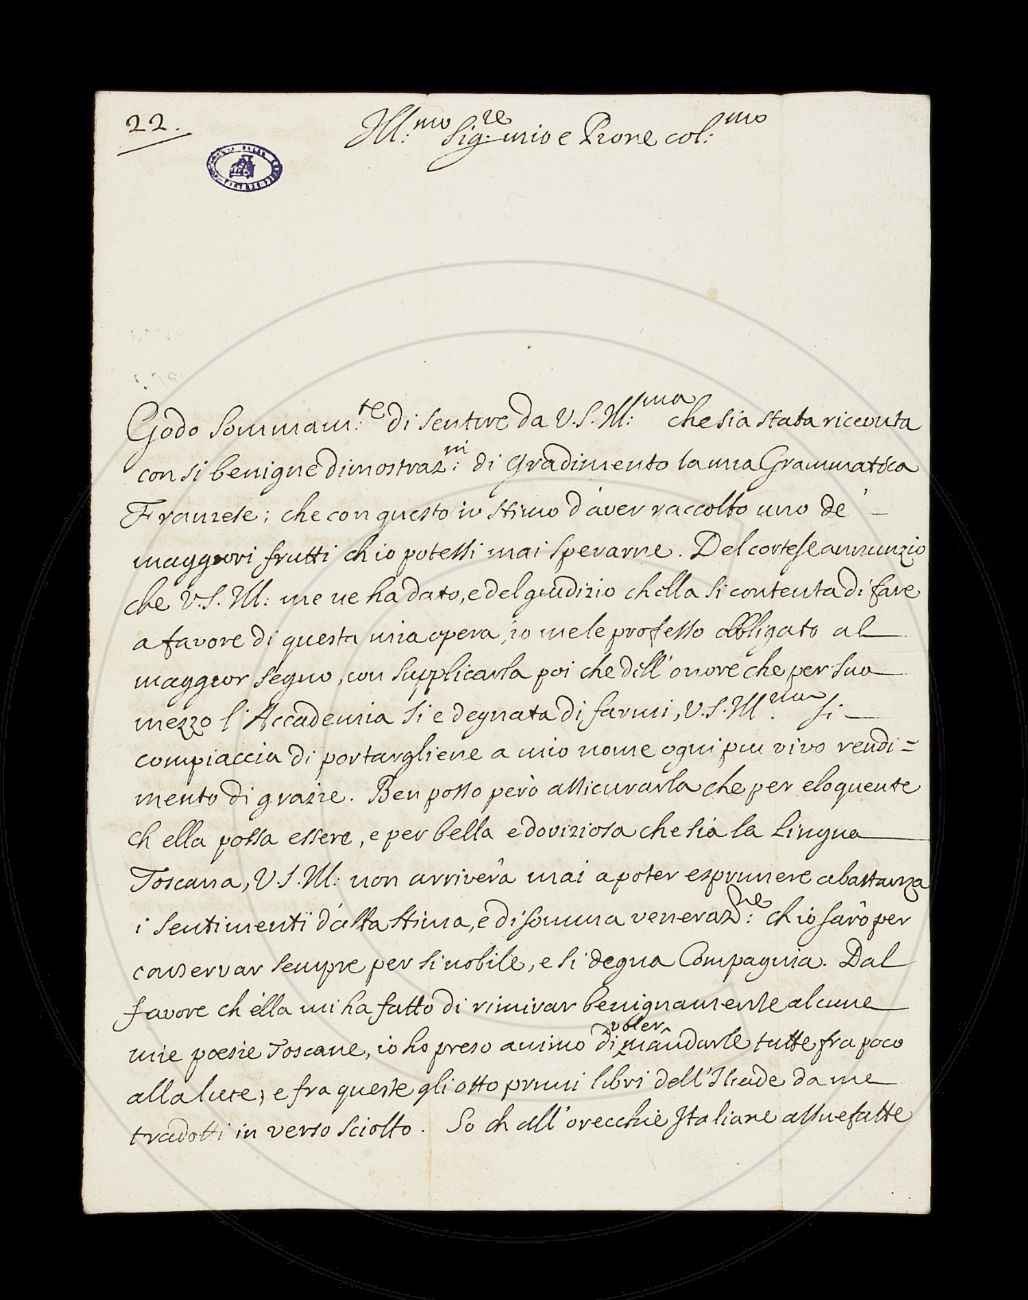 22.
Ill:mo Sig:re mio e Prone col:mo
Godo sommam:te di sentire da V.S. Ill:ma che sia stata riceuuta
con si benigne dimostraz:ni di gradimento la mia Grammatica
Franzese; che con questo io stimo d'aver raccolto uno de'
maggiori frutti ch'io potessi mai sperarne. Del cortese annunzio
che V.S. Ill: me ne ha dato, e del giudizio ch'ella si contenta di fare
a favore di questa mia opera, io me le professo obbligato al
maggior segno, con supplicarla poi che dell'onore che per suo
mezzo l'Accademia si e degnata di farmi, V.S. Ill:ma si
compiaccia di portargliene a mio nome ogni piu vivo rendi=
mento di grazie. Ben posso però assicurarla che per eloquente
ch'ella possa essere, e per bella e doviziosa che sia la Lingua
Toscana, V.S. Ill: non arriverà mai a poter esprimere abastanza
i sentimenti d'alta stima, e di somma veneraz:ne ch'io sarò per
conservar sempre per si nobile, e si degna Compagnia. Dal
favore ch'ella mi ha fatto di rimirar benignamente alcune
mie poesie Toscane, io ho preso animo di voler mandarle tutte fra poco
alla luce; e fra queste gli otto primi libri dell'Iliade da me
tradotti in verso sciolto. So ch'all'orecchie Italiane assuefatte